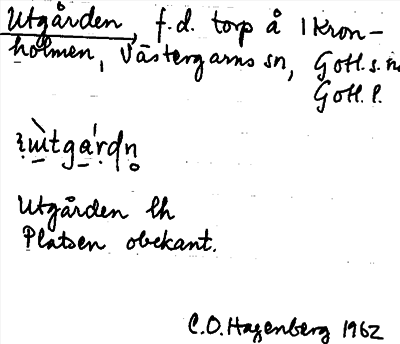 Utgården, f.d. torp å Kron-
holmen, Västergarns sn, Gotl. s. h.
Gotl. l.
Utgården lh
Platsen obekant.
C.O. Hagenberg 1962